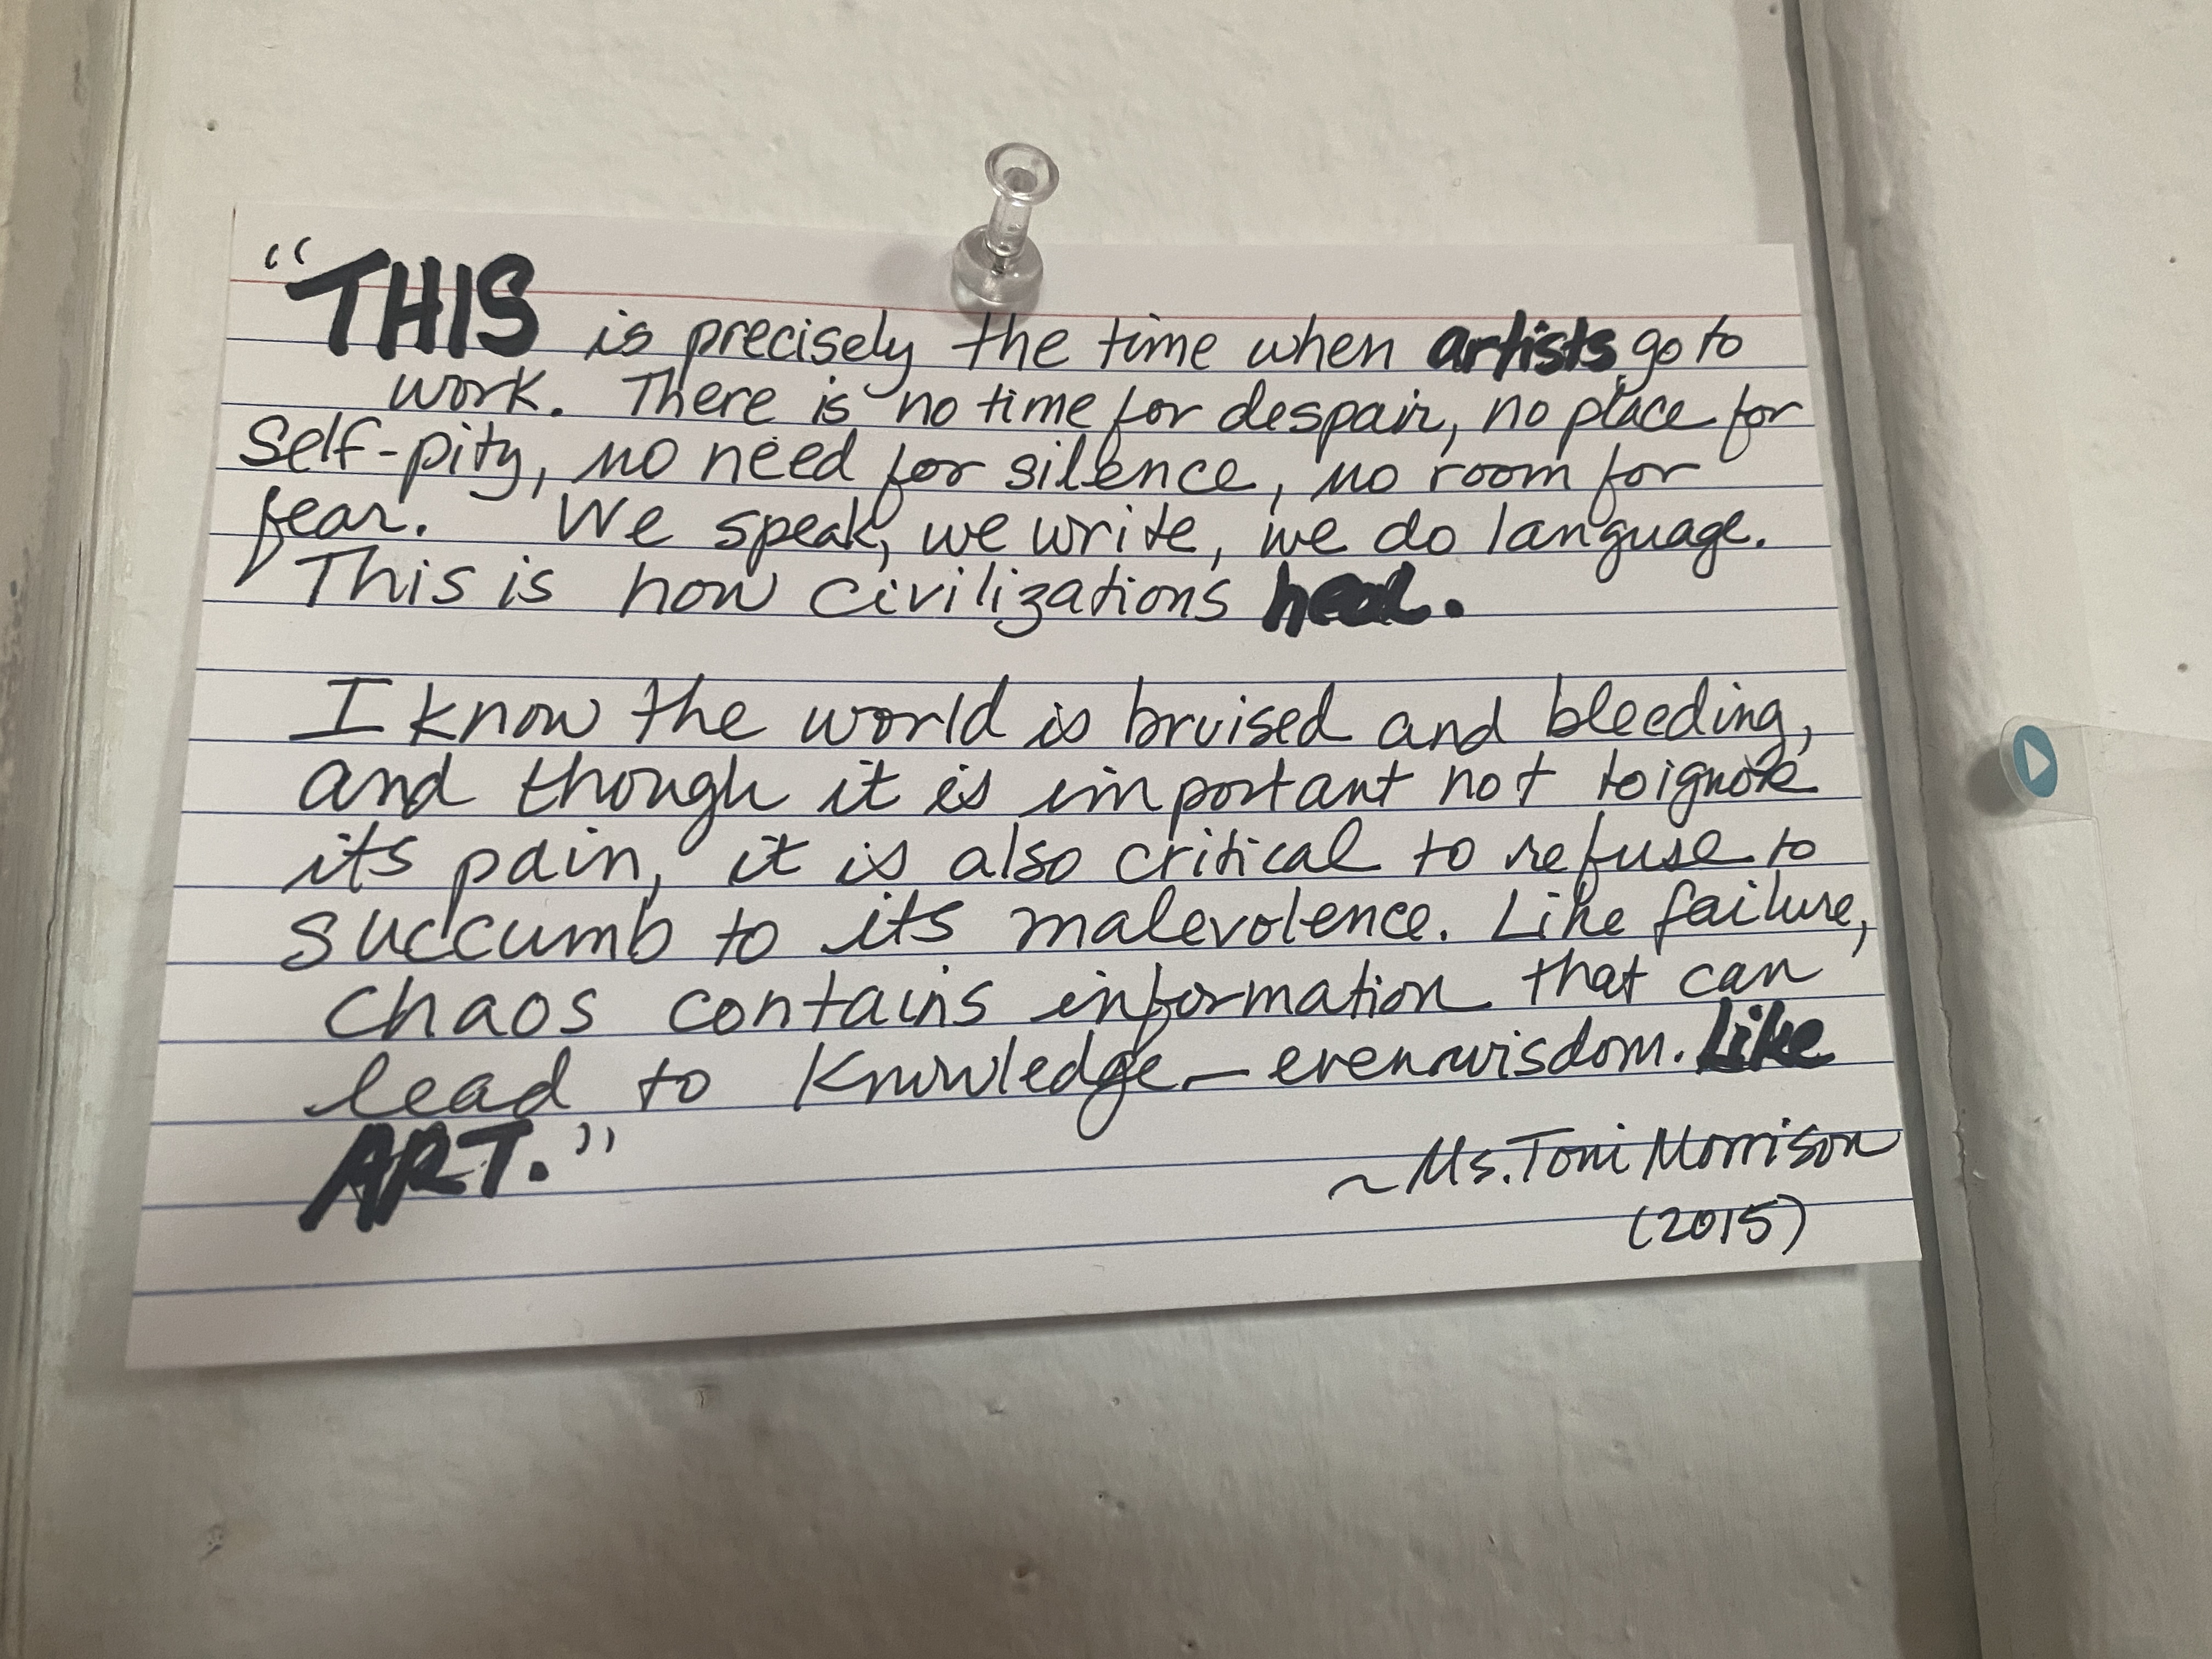 “THIS is precisely the time when artists go to
work. There is no time for despair, no place for
Self-pity, no need for silence, no room for
fear. We speak, we write, we do language.
This is how civilizations heal.
I know the world is bruised and bleeding,
and though it is important not to ignore
its pain, it is also critical to refuse to
succumb to its malevolence. Like failure,
chaos contains information that can
lead to Knowledge — even wisdom. Like
ART.”
~Ms. Toni Morrison
(2015)